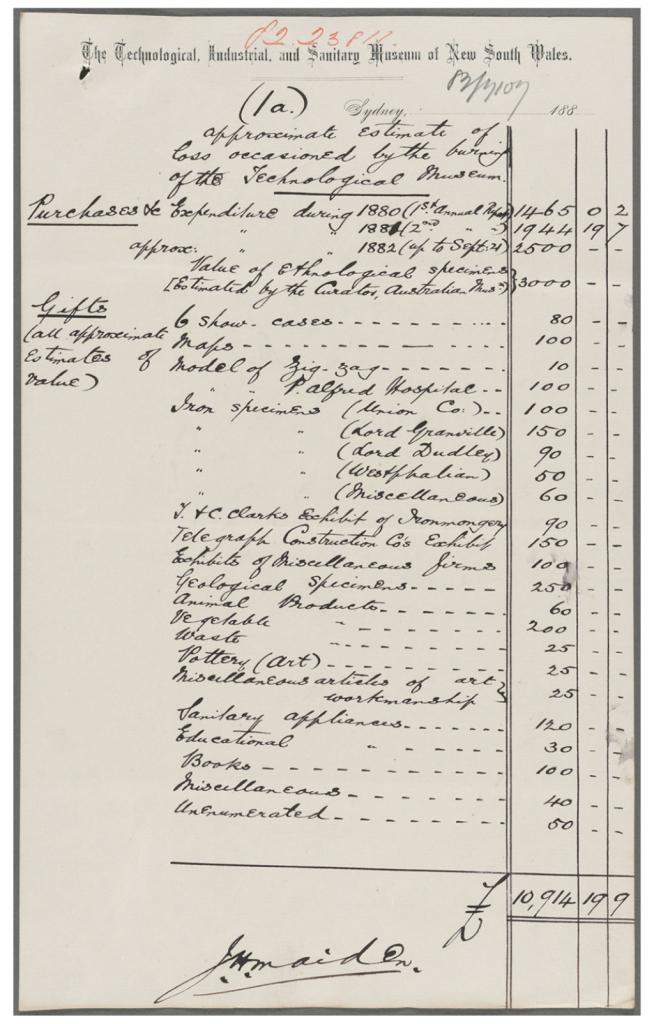 82.2381
The Technological, Industrial, and Sanitary Museum of New South Wales.
(1a.)
Sydney, 188
approximate estimate of
loss occasioned by the burning
of the Technological Museum.
Purchases &c Expenditure during 1880 (1st Annual Report) 1465 0 2
" " 1881 (2nd " ") 1944 19 7
approx: " " 1882 (up to Sept: 21) 2500 - -
Value of Ethnological specimens
[Estimated by the Curator, Australian Musm.] } 3000 - -
Gifts
(all approximate
Estimates of
value)
6 show-cases 80 - -
Maps 100 - -
Model of Zig-zag 10 - -
" " P. Alfred Hospital 100 - -
Iron specimens (Union Co:) 100 - -
" " (Lord Granville) 150 - -
" " (Lord Dudley) 90 - -
" " (Westphalian) 50 - -
" " (Miscellaneous) 60 - -
T. & C. Clarks Exhibit of Ironmongery 90 - -
Telegraph Construction Co's Exhibit 150 - -
Exhibits of Miscellaneous firms 100 - -
Geological Specimens 250 - -
Animal Products 60 - -
Vegetable " 200 - -
Waste " 25 - -
Pottery (Art) 25 - -
Miscellaneous articles of art
workmanship } 25 - -
Sanitary appliances 120 - -
Educational " 30 - -
Books 100 - -
Miscellaneous 40 - -
Unenumerated 50 - -
£ 10,914 19 9
J.H. Maiden.